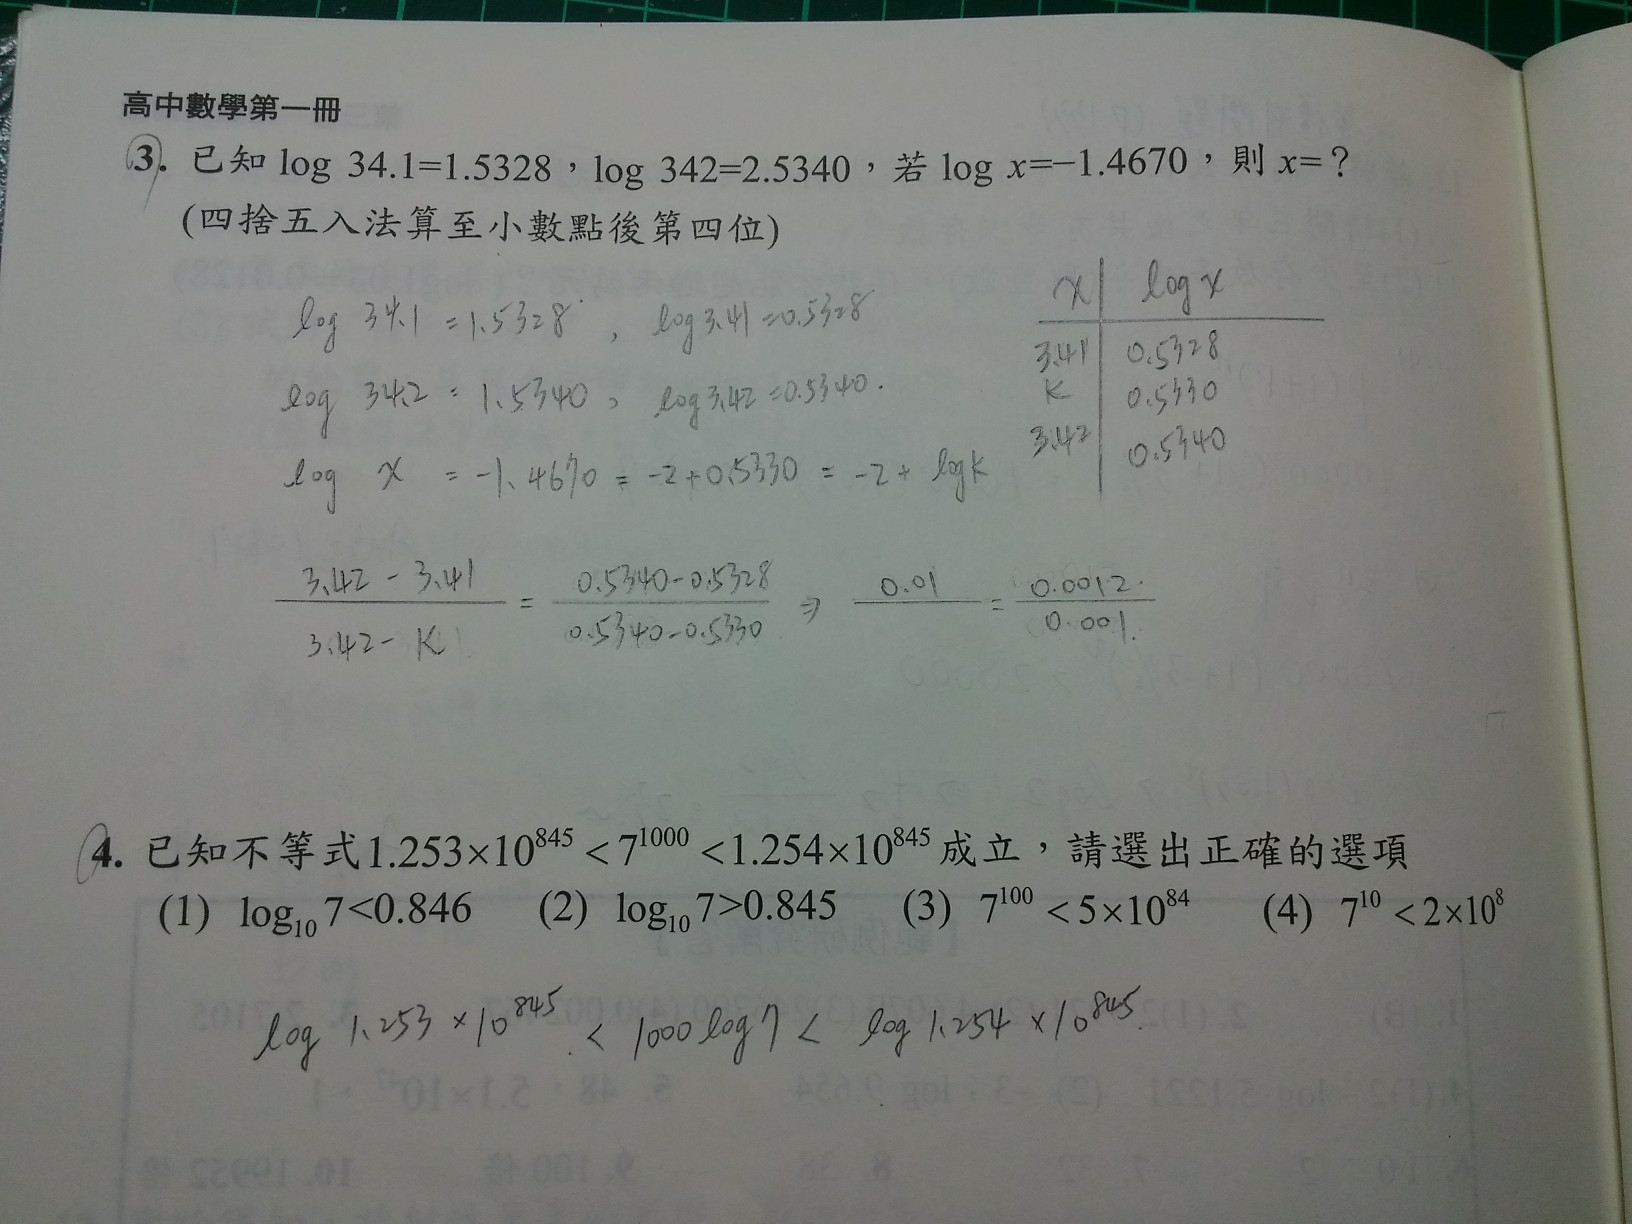 高中數學第一冊
3. 已知 log 34.1=1.5328，log 342=2.5340，若 log x=−1.4670，則 x=？
(四捨五入法算至小數點後第四位)
log 34.1 = 1.5328 , log 3.41 = 0.5328
log 34.2 = 1.5340 , log 3.42 = 0.5340.
log x = -1.4670 = -2+0.5330 = -2 + log k
x | log x
3.41 | 0.5328
K | 0.5330
3.42 | 0.5340
3.42 - 3.41 / 3.42 - K = 0.5340-0.5328 / 0.5340-0.5330 ⇒ 0.01 / = 0.0012 / 0.001.
4. 已知不等式1.253×10^845 < 7^1000 < 1.254×10^845 成立，請選出正確的選項
(1) log₁₀ 7<0.846 (2) log₁₀ 7>0.845 (3) 7^100 < 5×10^84 (4) 7^10 < 2×10^8
log 1.253 × 10^845 < 1000 log 7 < log 1.254 × 10^845.